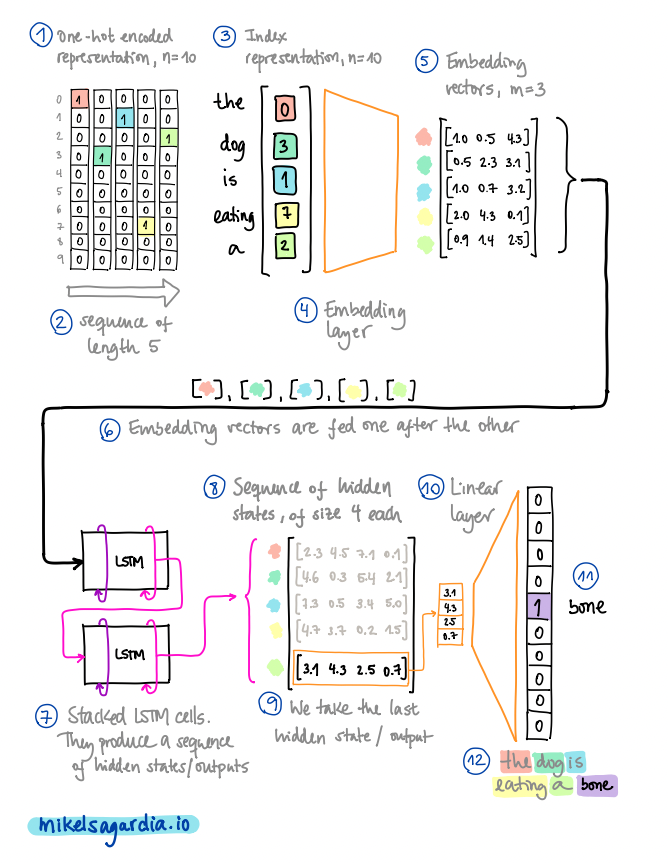 1 One-hot encoded
representation, n=10
0 1 0 0 0 0
1 0 0 1 0 0
2 0 0 0 0 1
3 0 1 0 0 0
4 0 0 0 0 0
5 0 0 0 0 0
6 0 0 0 0 0
7 0 0 0 1 0
8 0 0 0 0 0
9 0 0 0 0 0
2 sequence of
length 5
3 Index
representation, n=10
the 0
dog 3
is 1
eating 7
a 2
4 Embedding
layer
5 Embedding
vectors, m=3
[1.0 0.5 4.3]
[0.5 2.3 3.1]
[1.0 0.7 3.2]
[2.0 4.3 0.1]
[0.9 1.4 2.5]
[ ], [ ], [ ], [ ], [ ]
6 Embedding vectors are fed one after the other
LSTM
LSTM
7 Stacked LSTM cells.
They produce a sequence
of hidden states/outputs
8 Sequence of hidden
states, of size 4 each
[2.3 4.5 7.1 0.1]
[4.6 0.3 5.4 2.1]
[7.3 0.5 3.4 5.0]
[4.7 3.7 0.2 1.5]
[3.1 4.3 2.5 0.7]
9 We take the last
hidden state / output
3.1
4.3
2.5
0.7
10 Linear
layer
0
0
0
0
1
0
0
0
0
11
bone
12 the dog is
eating a bone
mikelsagardia.io